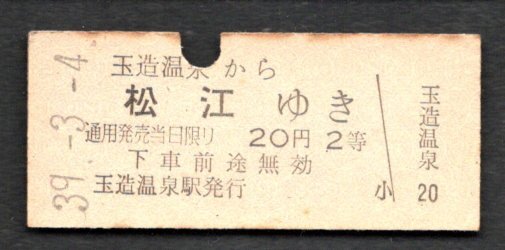 39.-3.-4
玉造温泉 から
松江 ゆき
通用発売当日限り 20円 2等
下車前途無効
玉造温泉駅発行
小
玉造温泉
20